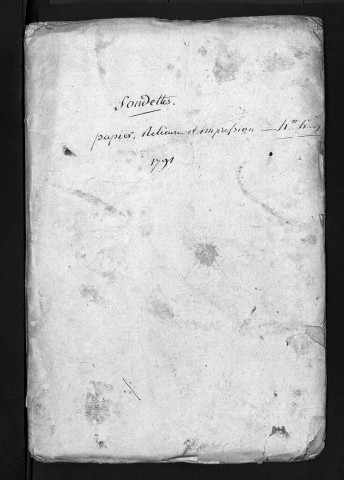 Soudettes.
papier, Relieure et impression — 4ᵗᵗ
1791